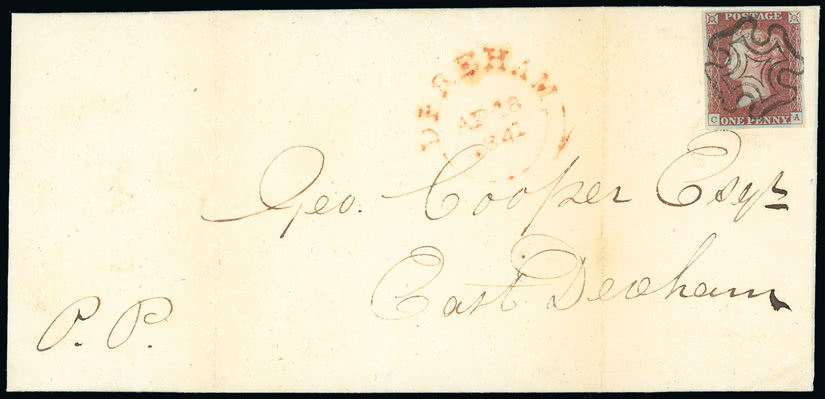 POSTAGE
C ONE PENNY A
DEREHAM
AP 18
1842
Geo. Cooper Esqr
East Dereham
P. P.